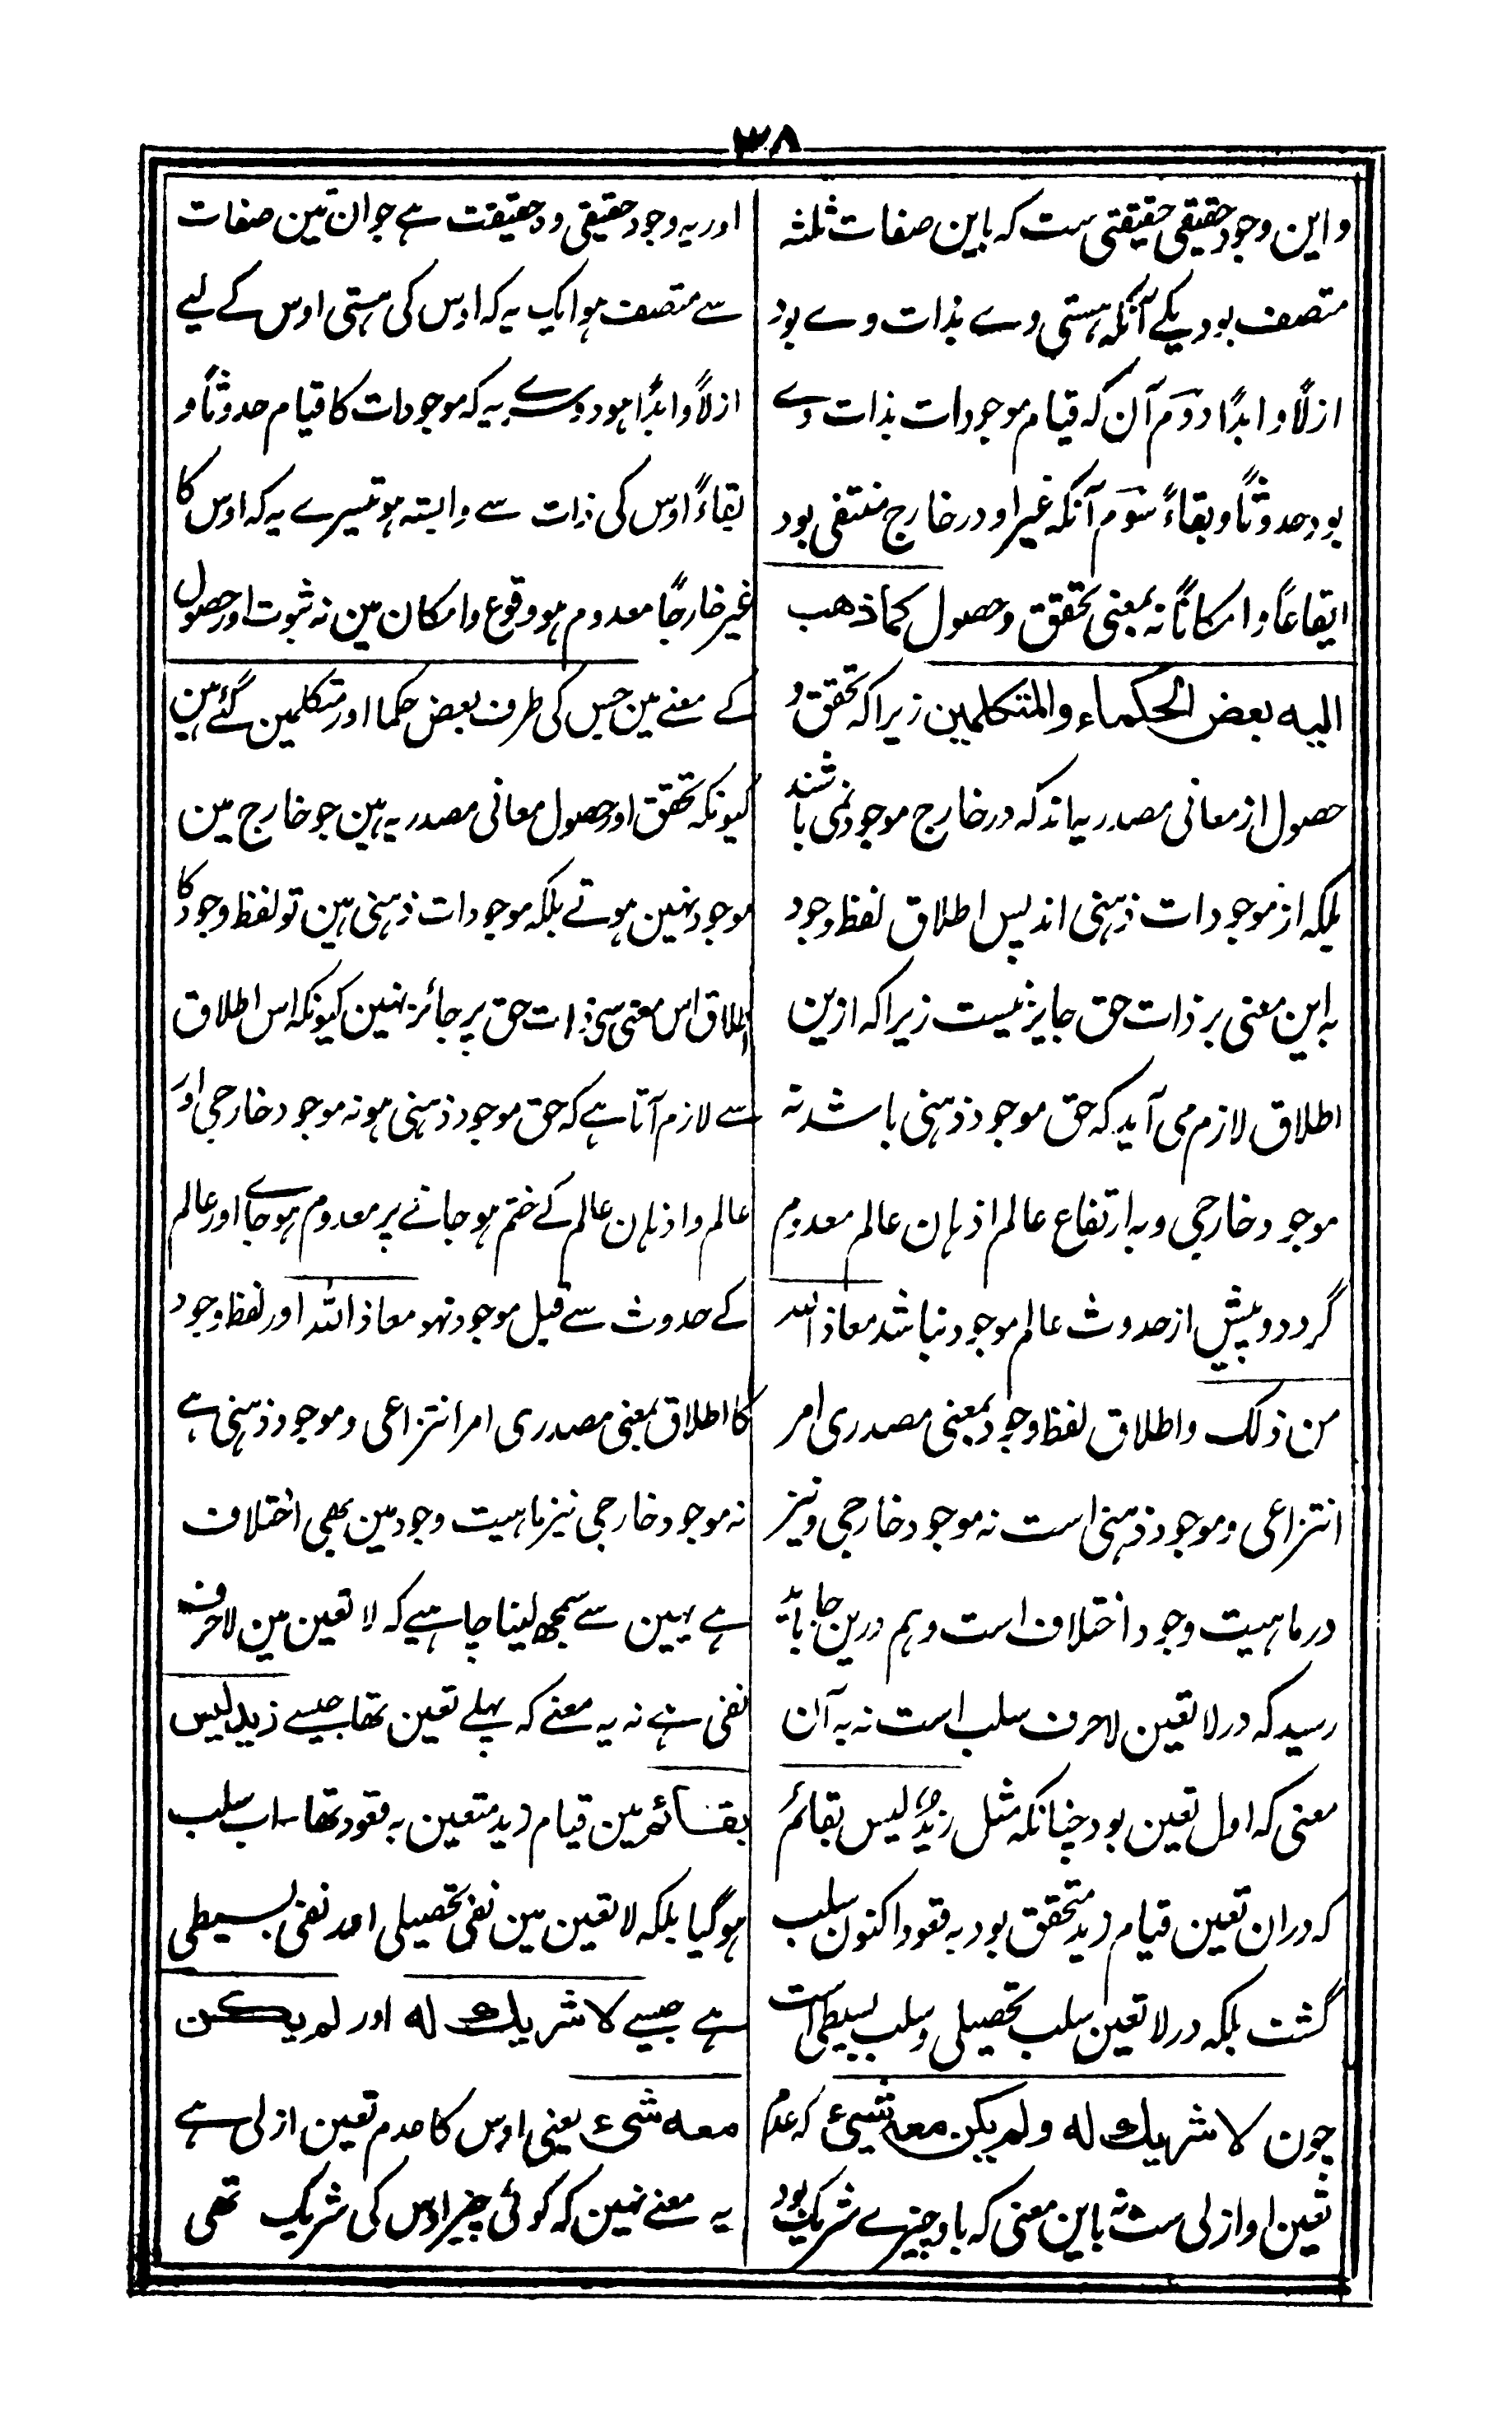 ۳۸
و این وجود حقیقی حقیقتی ست که باین صفات ثلثه
متصف بود یکے آنکه هستی وے بذات وے بود
ازلاً و ابدًا دوم آن که قیام موجودات بذات وے
بود حدوثاً و بقاءً سوم آنکه غیر او در خارج منتفی بود
ایقاعاً و امکاناً نه بمعنی تحقق و حصول کما ذهب
الیه بعض الحکماء و المتکلمین زیراکه تحقق و
حصول از معانی مصدریه اند که در خارج موجود نمی باشند
بلکه از موجودات ذهنی اند پس اطلاق لفظ وجود
به این معنی بر ذات حق جایز نیست زیراکه ازین
اطلاق لازم می آید که حق موجود ذهنی باشد نه
موجود خارجی و به ارتفاع عالم اذهان عالم معدوم
گردد و پیش از حدوث عالم موجود نباشد معاذ الله
من ذلک و اطلاق لفظ وجود بمعنی مصدری امر
انتزاعی و موجود ذهنی است نه موجود خارجی و نیز
در ماهیت وجود اختلاف است و هم درین جا باید
رسید که در لا تعین لا حرف سلب است نه به آن
معنی که اول تعین بود چنانکه مثل زیدٌ لیس بقائم
که دران تعین قیام زید متحقق بود به قعود اکنون سلب
گشت بلکه در لا تعین سلب تحصیلی و سلب بسیطی است
چون لا شریك له و لم یکن معه شیئ که عدم
تعین او ازلی ست نه باین معنی که با او چیزے شریک بود
اور یہ وجود حقیقی وہ حقیقت ہے جو ان تین صفات
سے متصف ہو ایک یہ کہ اوس کی ہستی اوس کے لیے
ازلاً و ابدًا ہو دوسرے یہ کہ موجودات کا قیام حدوثاً و
بقاءً اوس کی ذات سے وابستہ ہو تیسرے یہ کہ اوس کا
غیر خارجًا معدوم ہو وقوع و امکان مین نہ ثبوت اور حصول
کے معنے مین جس کی طرف بعض حکما اور متکلمین گئے ہین
کیونکہ تحقق اور حصول معانی مصدریہ ہین جو خارج مین
موجود نہین ہوتے بلکہ موجودات ذہنی ہین تو لفظ وجود کا
اطلاق اس معنی سے ذات حق پر جائز نہین کیونکہ اس اطلاق
سے لازم آتا ہے کہ حق موجود ذہنی ہو نہ موجود خارجی اور
عالم و اذہان عالم کے ختم ہو جانے پر معدوم ہو جاے اور عالم
کے حدوث سے قبل موجود نہو معاذ اللہ اور لفظ وجود
کا اطلاق بمعنی مصدری امر انتزاعی و موجود ذہنی ہے
نہ موجود خارجی نیز ماہیت وجود مین بھی اختلاف
ہے یہین سے سمجھ لینا چاہیے کہ لا تعین مین لا حرف
نفی ہے نہ یہ معنے کہ پہلے تعین تھا جیسے زید لیس
بقائم مین قیام زید متعین بہ قعود تھا۔ اب سلب
ہو گیا بلکہ لا تعین مین نفی تحصیلی اور نفی بسیطی
ہے جیسے لا شریك له اور لم یکن
معه شیء یعنی اوس کا عدم تعین ازلی ہے
یہ معنے نہین کہ کوئی چیز اوس کی شریک تھی